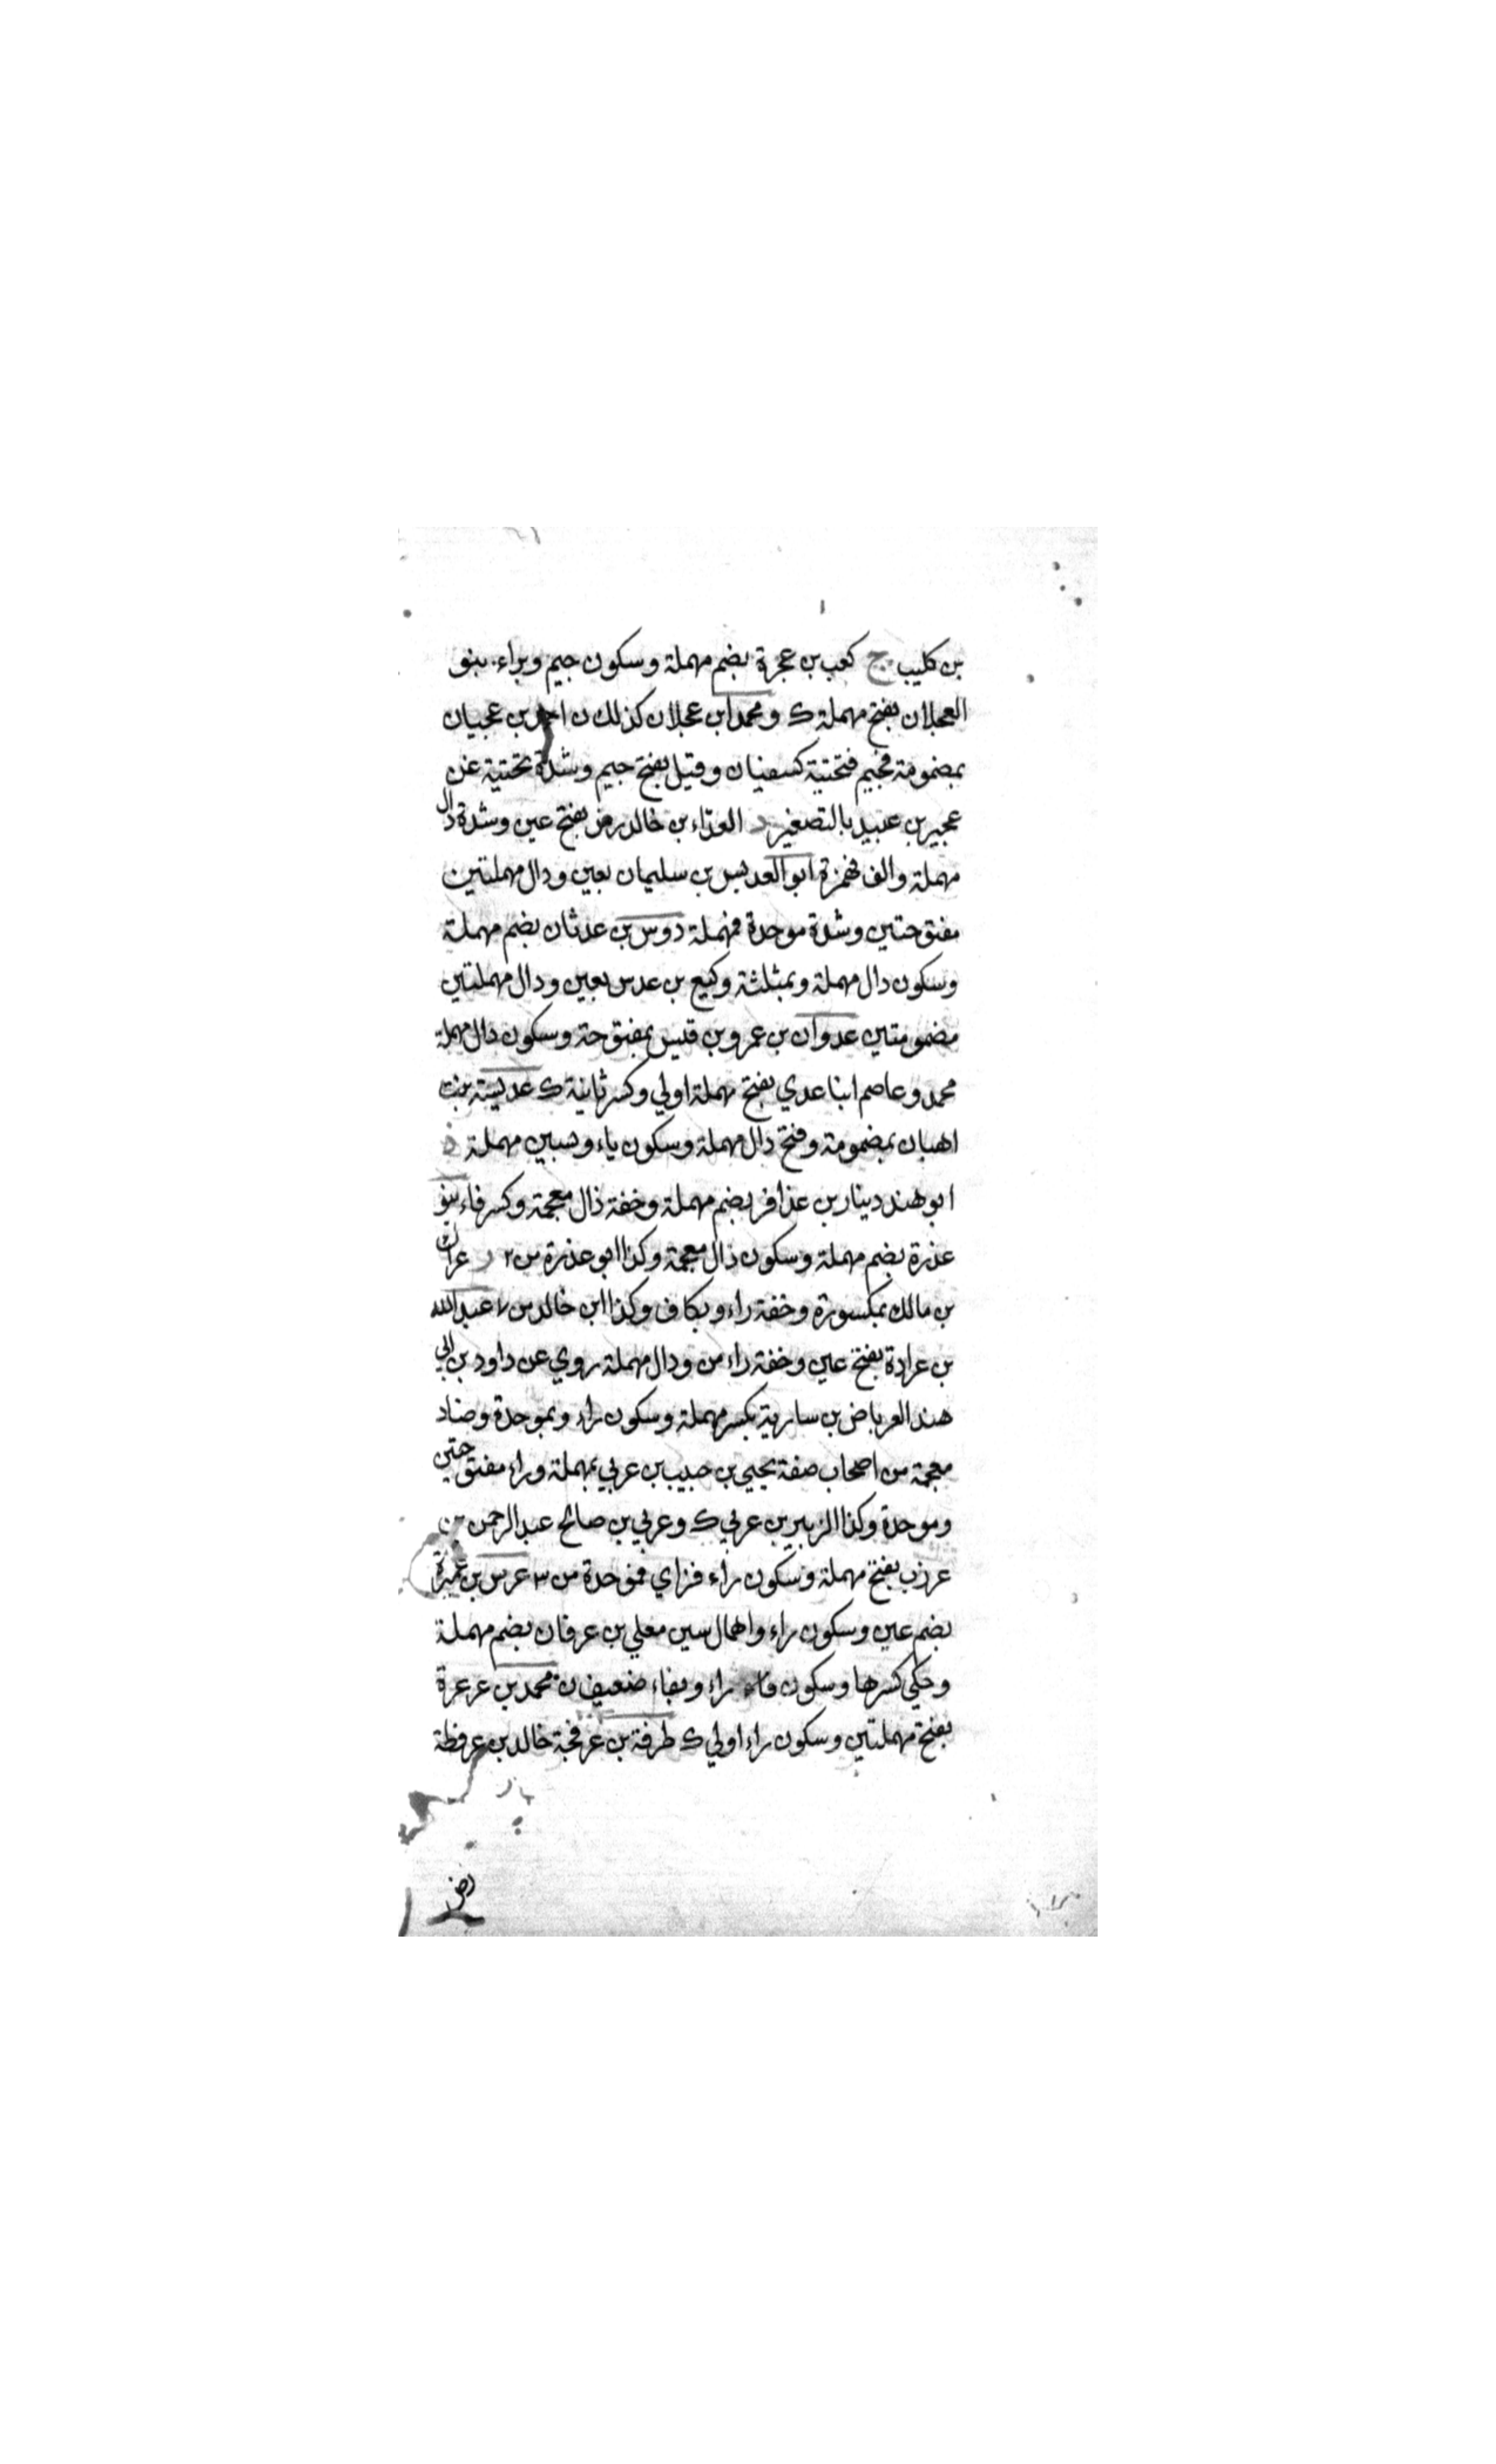 بن كليب ج كعب بن عجرة بضم مهملة وسكون جيم وبراء بنو
العجلان بفتح مهملة ك ومحمد ابن عجلان كذلك ن احمد بن عجيان
بمضمومة فجيم فتحتية كسفيان وقيل بفتح جيم وشدة تحتية عن
عجير بن عبيد بالتصغير د العداء بن خالد بفتح عين وشدة دال
مهملة والف فهمزة ابو العدبس بن سليمان بعين ودال مهملتين
مفتوحتين وشدة موحدة فمهملة دوس بن عدثان بضم مهملة
وسكون دال مهملة وبمثلثة وكيع بن عدس بعين ودال مهملتين
مضمومتين عدوان بن عمرو بن قيس بمفتوحة وسكون دال مهملة
محمد وعاصم ابنا عدي بفتح مهملة اولي وكسر ثانية ك عديسة بنت
اهبان بمضمومة وفتح دال مهملة وسكون ياء وبسين مهملة ذ
ابو هند دينار بن عذافر بضم مهملة وخفة ذال معجمة وكسر فاء بنو
عذرة بضم مهملة وسكون ذال معجمة وكذا ابو عذرة من ٢ ر عراك
بن مالك بمكسورة وخفة راء وبكاف وكذا ابن خالد من ٧ عبد الله
بن عرادة بفتح عين وخفة راء من ودال مهملة روي عن داود بن ابي
هند العرباض بن سارية بكسر مهملة وسكون راء وبموحدة وضاد
معجمة من اصحاب صفة يحيي بن حبيب بن عربي بمهملة وراء مفتوحتين
وموحدة وكذا الزبير بن عربي ك وعربي بن صالح عبد الرحمن بن
عرزب بفتح مهملة وسكون راء فزاي فموحدة من ٣ عرس بن عميرة
بضم عين وسكون راء واهمال سين معلي بن عرفان بضم مهملة
وحكي كسرها وسكون راء وبفاء ضعيف ن محمد بن عرعرة
بفتح مهملتين وسكون راء اولي ك طرفة بن عرفجة خالد بن عرفطة